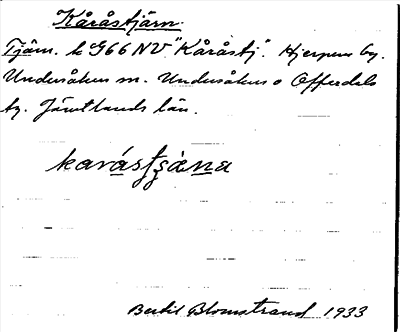 Kåråstjärn.
Tjärn. k G66 NV "Kåråstj". Hjerpens by.
Undersåkers sn. Undersåkers o Offerdals
tg. Jämtlands län.
Bertil Blomstrand 1933